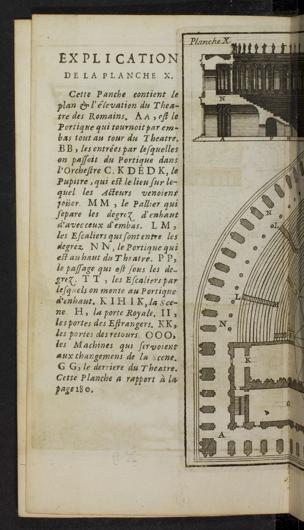 EXPLICATION
DE LA PLANCHE X.
Cette Panche contient le
plan & l'élevation du Thea-
tre des Romains. AA, est le
Portique qui tournoit par em-
bas tout au tour du Theatre.
BB, les entrées par lesquelles
on passoit du Portique dans
l'Orchestre C. KDEDK, le
Pupitre, qui est le lieu sur le-
quel les Acteurs venoient
joüer. MM, le Pallier qui
separe les degrez d'enhaut
d'avec ceux d'embas. LM,
les Escaliers qui sont entre les
degrez. NN, le Portique qui
est au haut du Theatre. PP,
le passage qui est sous les de-
grez. TT, les Escaliers par
lesquels on monte au Portique
d'enhaut. KIHIK, la Sce-
ne. H, la porte Royale. II,
les portes des Estrangers. KK,
les portes des retours. OOO,
les Machines qui servoient
aux changemens de la Scene.
GG, le derriere du Theatre.
Cette Planche a rapport à la
page 180.
Planche X.
N
A
N
L
L
N
K
A